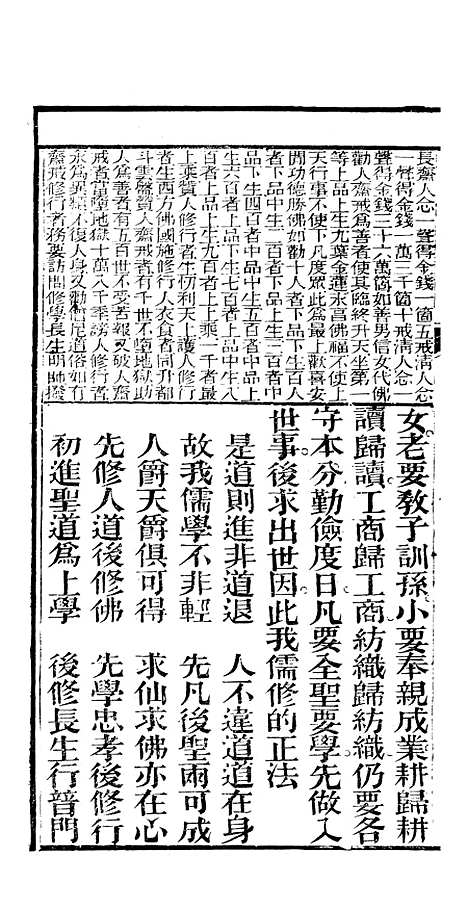 長齋人念一聲得金錢一箇五戒清人念
一聲得金錢一萬三千箇十戒清人念一
聲得金錢三十六萬箇如善男信女代佛
勸人齋戒爲善者使其臨終升天坐第一
等上品上生九葉金蓮永高佛福不使上
天行事不使下凡度眾此爲最上歡喜安
閒功德勝佛如勸十人者下品下生百人
者下品中生二百者下品上生三百者中
品下生四百者中品中生五百者中品上
生六百者上品下生七百者上品中生八
百者上品上生九百者上上乘一千者最
上乘質人修行者生忉利天上護人修行
者生西方佛國施修行人衣食者同升都
斗雲磬質人齋戒者有千世不墮地獄助
人爲善者有五百世不受苦報又破人齋
戒者當墮地獄十萬八千季謗人修行者
永爲異類不復人身又勸僧尼道俗如有
齋戒修行者務要訪問修學長生明師撥
女老要敎子訓孫小要奉親成業耕歸耕
讀歸讀工商歸工商紡織歸紡織仍要各
守本分勤儉度日凡要全聖要學先做入
世事後求出世因此我儒修的正法
是道則進非道退　人不違道道在身
故我儒學不非輕　先凡後聖兩可成
人爵天爵俱可得　求仙求佛亦在心
先修人道後修佛　先學忠孝後修行
初進聖道爲上學　後修長生行普門